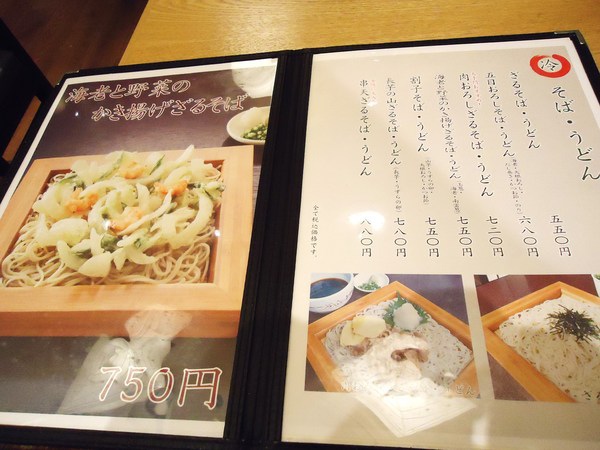 海老と野菜の
かき揚げざるそば
750円
冷
そば・うどん
ざるそば・うどん 五五〇円
五目おろしそば・うどん 六八〇円
肉おろしざるそば・うどん 七二〇円
海老と野菜のかき揚げざるそば・うどん 七五〇円
割子そば・うどん 七五〇円
長芋の山かけざるそば・うどん 七八〇円
串天ざるそば・うどん 八八〇円
全て税込価格です。